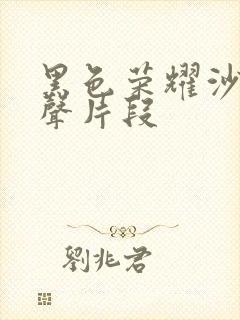 黑色荣耀沙
聲片段
劉兆君